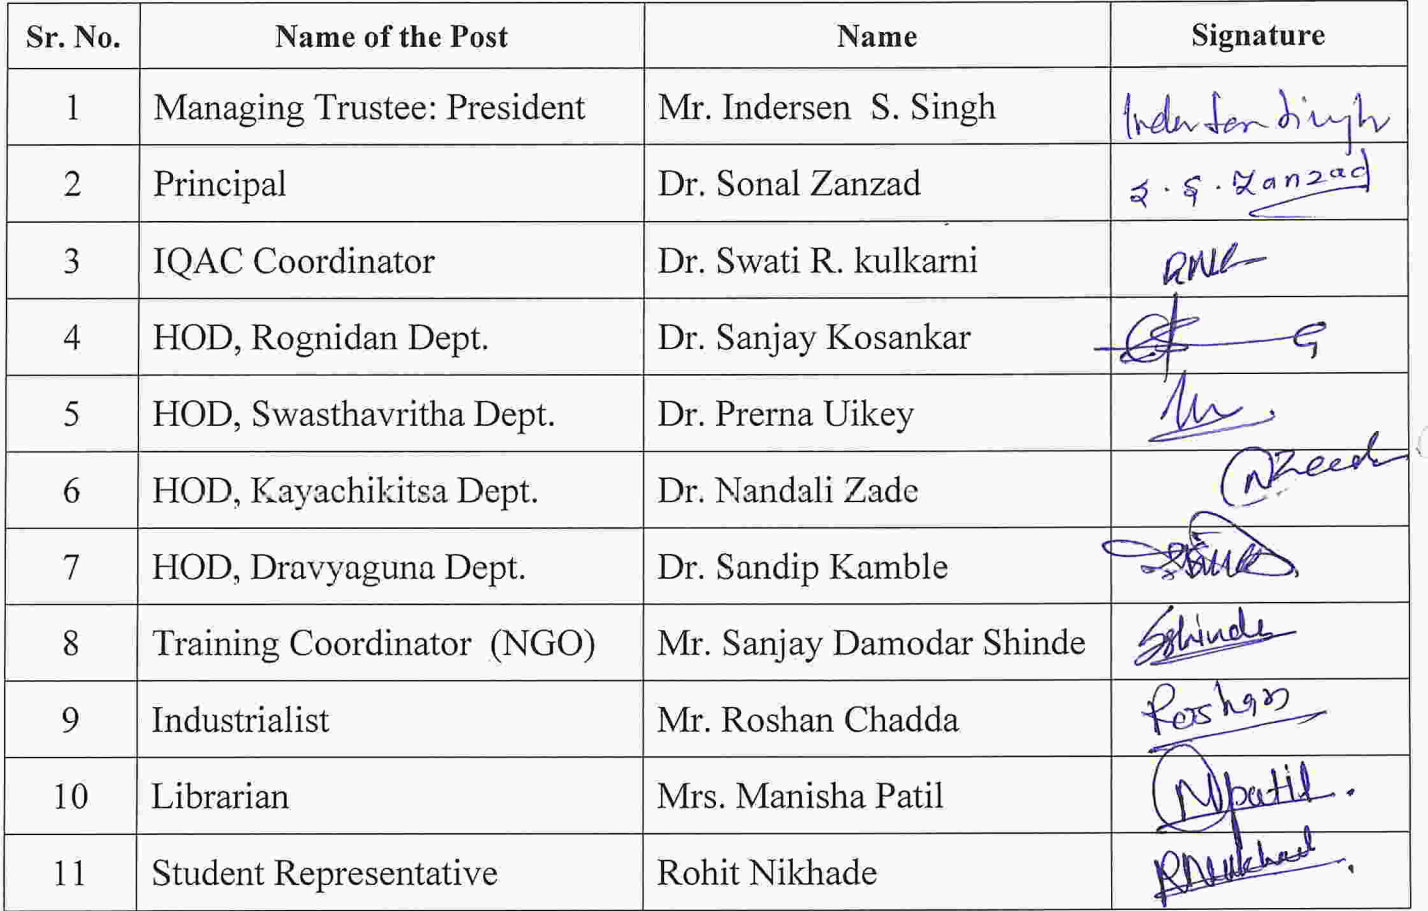 Sr. No. Name of the Post Name Signature
1 Managing Trustee: President Mr. Indersen S. Singh Indersen Singh
2 Principal Dr. Sonal Zanzad S. S. Zanzad
3 IQAC Coordinator Dr. Swati R. kulkarni
4 HOD, Rognidan Dept. Dr. Sanjay Kosankar
5 HOD, Swasthavritha Dept. Dr. Prerna Uikey
6 HOD, Kayachikitsa Dept. Dr. Nandali Zade
7 HOD, Dravyaguna Dept. Dr. Sandip Kamble
8 Training Coordinator (NGO) Mr. Sanjay Damodar Shinde SShinde
9 Industrialist Mr. Roshan Chadda Roshan
10 Librarian Mrs. Manisha Patil Mpatil.
11 Student Representative Rohit Nikhade